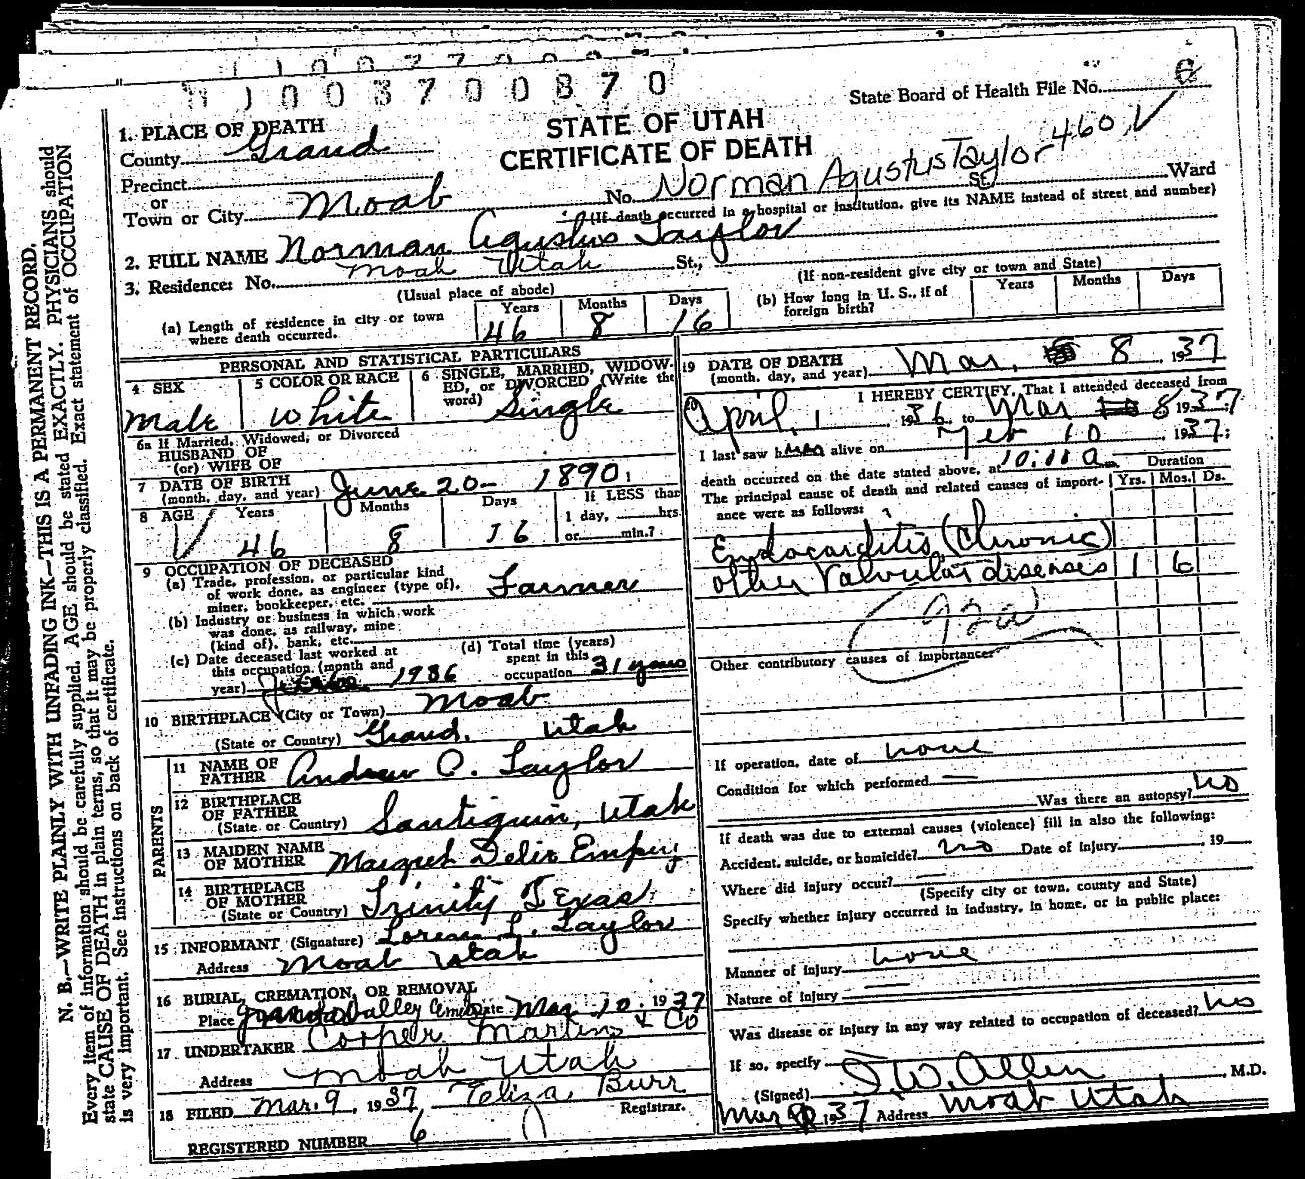 1003700870
State Board of Health File No. 6
STATE OF UTAH
CERTIFICATE OF DEATH
460 V
1. PLACE OF DEATH
County Grand
Precinct
or
Town or City Moab No. Norman Agustus Taylor St. Ward
(If death occurred in a hospital or institution, give its NAME instead of street and number)
2. FULL NAME Norman Agustus Taylor
3. Residence: No. Moab Utah St.,
(Usual place of abode) (If non-resident give city or town and State)
(a) Length of residence in city or town where death occurred. Years 46 Months 8 Days 16
(b) How long in U. S., if of foreign birth? Years Months Days
PERSONAL AND STATISTICAL PARTICULARS
4 SEX Male
5 COLOR OR RACE White
6 SINGLE, MARRIED, WIDOWED, or DIVORCED (Write the word) Single
6a If Married, Widowed, or Divorced
HUSBAND OF
(or) WIFE OF
7 DATE OF BIRTH (month, day, and year) June 20- 1890
8 AGE Years 46 Months 8 Days 16 If LESS than 1 day, hrs. or min.?
9 OCCUPATION OF DECEASED
(a) Trade, profession, or particular kind of work done, as engineer (type of), miner, bookkeeper, etc. Farmer
(b) Industry or business in which work was done, as railway, mine (kind of), bank, etc.
(c) Date deceased last worked at this occupation (month and year) 1936
(d) Total time (years) spent in this occupation 31 years
10 BIRTHPLACE (City or Town) Moab
(State or Country) Grand, Utah
PARENTS
11 NAME OF FATHER Andrew O. Taylor
12 BIRTHPLACE OF FATHER (State or Country) Santiquin, Utah
13 MAIDEN NAME OF MOTHER Margret Delir Empey
14 BIRTHPLACE OF MOTHER (State or Country) Trinity Texas
15 INFORMANT (Signature) Loren L. Taylor
Address Moab Utah
16 BURIAL, CREMATION, OR REMOVAL
Place Valley Date Mar 10, 1937
17 UNDERTAKER Corper Martin & Co
Address Moab Utah
18 FILED Mar. 9, 1937 Teliza Burr
Registrar.
REGISTERED NUMBER 6
19 DATE OF DEATH (month, day, and year) Mar, 8, 1937
20 I HEREBY CERTIFY, That I attended deceased from
April, 1 1936 to Mar 8 1937;
I last saw him alive on Feb 10, 1937;
death occurred on the date stated above, at 10.10 a m
Duration
The principal cause of death and related causes of importance were as follows: Yrs. Mos. Ds.
Endocarditis (Chronic)
other Valvular diseases 1 6
92a
Other contributory causes of importance
If operation, date of none
Condition for which performed —
Was there an autopsy? no
If death was due to external causes (violence) fill in also the following:
Accident, suicide, or homicide? no Date of Injury 19
Where did injury occur?
(Specify city or town, county and State)
Specify whether injury occurred in industry, in home, or in public place:
Manner of injury none
Nature of injury
Was disease or injury in any way related to occupation of deceased? no
If so, specify
(Signed) I. W. Allen, M.D.
Mar 8 1937 Address Moab Utah
N. B.—WRITE PLAINLY WITH UNFADING INK—THIS IS A PERMANENT RECORD.
Every item of information should be carefully supplied. AGE should be stated EXACTLY. PHYSICIANS should
state CAUSE OF DEATH in plain terms, so that it may be properly classified. Exact statement of OCCUPATION
is very important. See instructions on back of certificate.